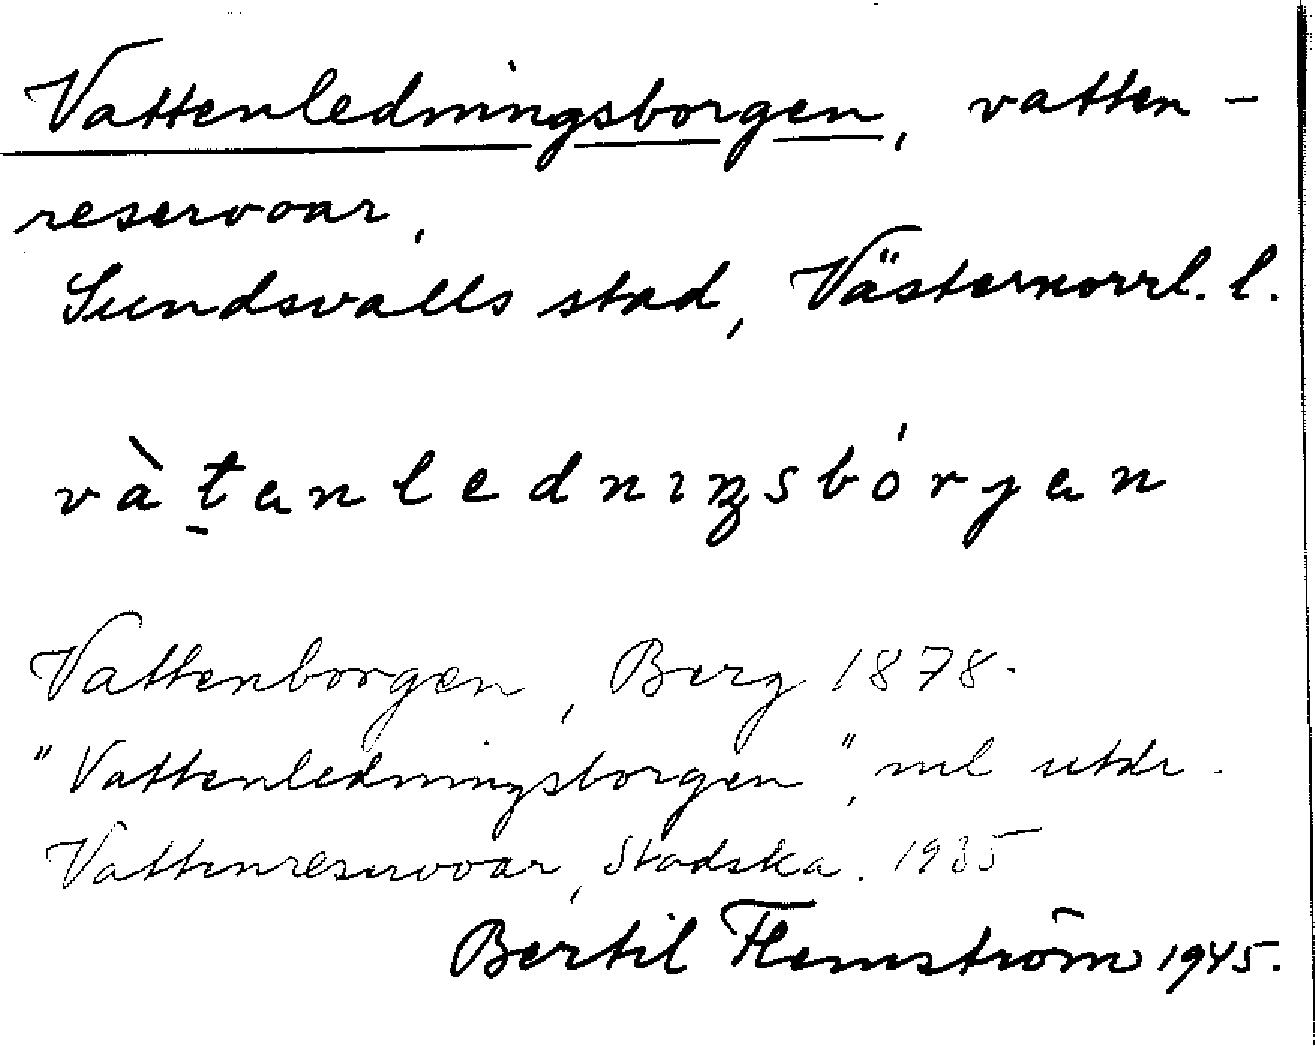 Vattenledningsborgen, vatten-
reservoar,
Sundsvalls stad, Västernorrl. l.
vàt̠enledniŋsbórjen
Vattenborgen, Berg 1878.
"Vattenledningsborgen", ml utdr.
Vattenreservoar, Stadska. 1935
Bertil Flemström 1945.